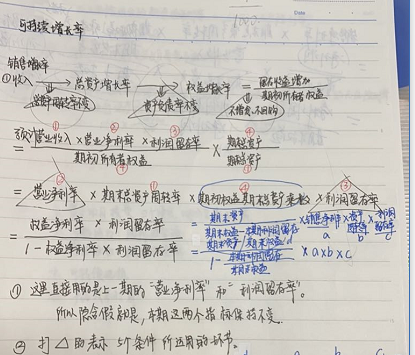 可持续增长率
销售增长率
①收入 → 总资产增长率 → 权益增长率 = 留存收益增加 / 期初所有者权益
总资产周转率不变 资产负债率不变 不增发、不回购
= 预计营业收入 × 营业净利率 × 利润留存率 / 期初所有者权益 × 期末总资产 / 期末总资产
= 营业净利率 × 期末总资产周转率 × 期初权益期末总资产乘数 × 利润留存率
= 权益净利率 × 利润留存率 / 1 - 权益净利率 × 利润留存率
= 期末资产 / 期末权益 - 本期利润留存 × 销售净利率 × 资产周转率 × 利润留存率
a b c
期末资产 / 期末权益
1 - 本期利润留存 / 期末权益 × a×b×c
① 这里直接用的是上一期的“营业净利率”和“利润留存率”。
所以隐含假设是，本期这两个指标保持不变。
② 打△的表示 5个条件所运用的环节。